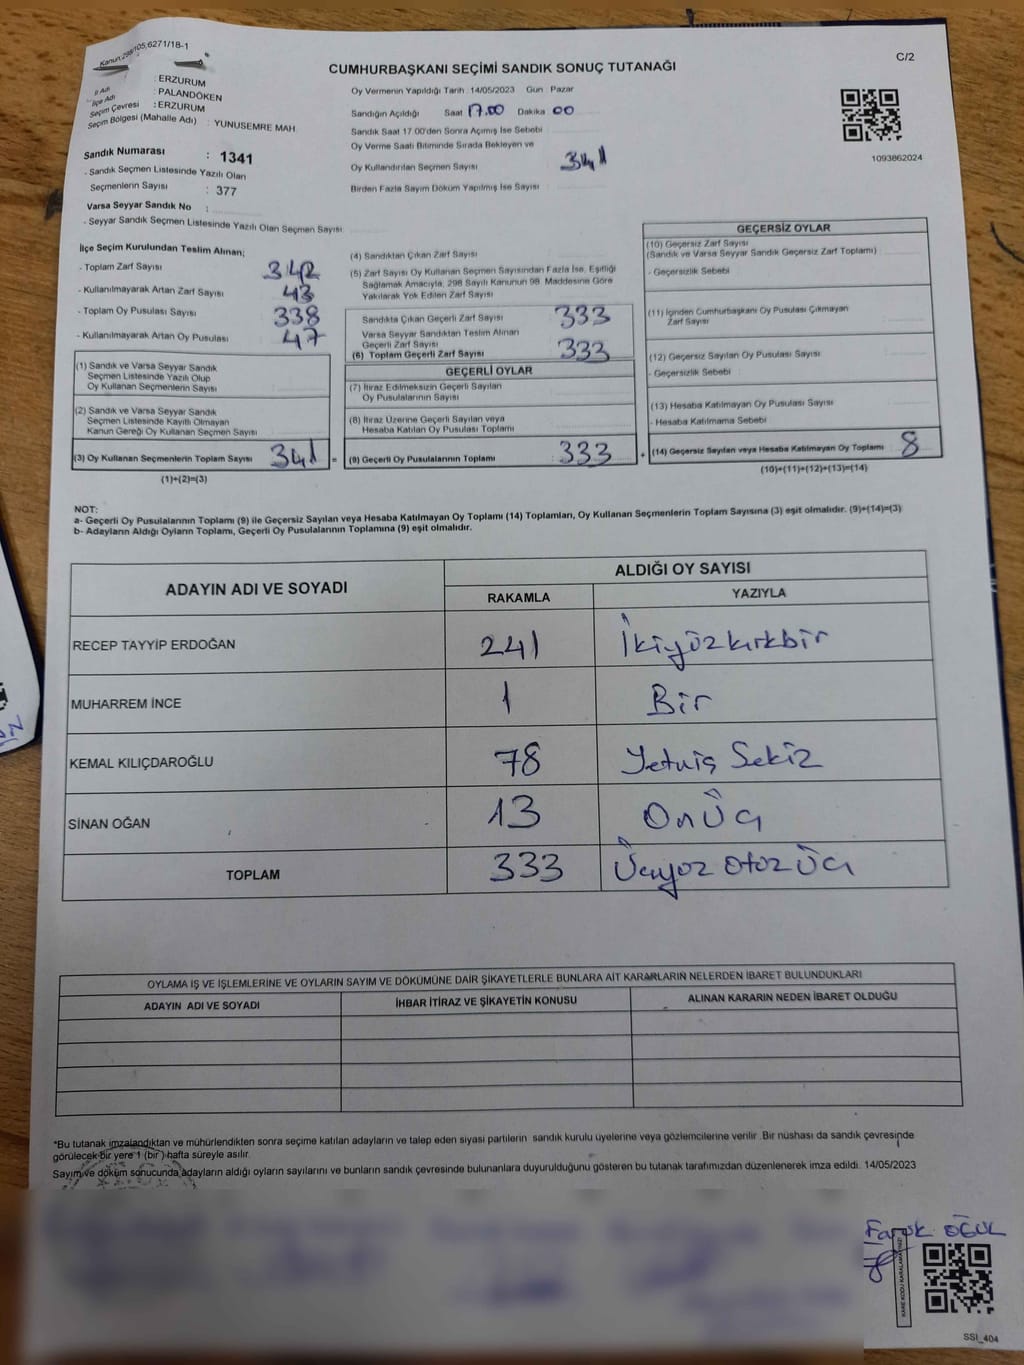 Kanun:298/105,6271/18-1
C/2
CUMHURBAŞKANI SEÇİMİ SANDIK SONUÇ TUTANAĞI
İl Adı : ERZURUM
İlçe Adı : PALANDÖKEN
Seçim Çevresi : ERZURUM
Seçim Bölgesi (Mahalle Adı) : YUNUSEMRE MAH.
Sandık Numarası : 1341
- Sandık Seçmen Listesinde Yazılı Olan
Seçmenlerin Sayısı : 377
Varsa Seyyar Sandık No :
- Seyyar Sandık Seçmen Listesinde Yazılı Olan Seçmen Sayısı:
Oy Vermenin Yapıldığı Tarih : 14/05/2023 Gün : Pazar
Sandığın Açıldığı Saat 17.00 Dakika 00
Sandık Saat 17.00'den Sonra Açılmış İse Sebebi
Oy Verme Saati Bitiminde Sırada Bekleyen ve
Oy Kullandırılan Seçmen Sayısı 341
Birden Fazla Sayım Döküm Yapılmış İse Sayısı
1093862024
İlçe Seçim Kurulundan Teslim Alınan;
- Toplam Zarf Sayısı 342
- Kullanılmayarak Artan Zarf Sayısı 43
- Toplam Oy Pusulası Sayısı 338
- Kullanılmayarak Artan Oy Pusulası 47
(1) Sandık ve Varsa Seyyar Sandık
Seçmen Listesinde Yazılı Olup
Oy Kullanan Seçmenlerin Sayısı
(2) Sandık ve Varsa Seyyar Sandık
Seçmen Listesinde Kayıtlı Olmayan
Kanun Gereği Oy Kullanan Seçmen Sayısı
(3) Oy Kullanan Seçmenlerin Toplam Sayısı 341 =
(1)+(2)=(3)
(4) Sandıktan Çıkan Zarf Sayısı
(5) Zarf Sayısı Oy Kullanan Seçmen Sayısından Fazla İse, Eşitliği
Sağlamak Amacıyla, 298 Sayılı Kanunun 98. Maddesine Göre
Yakılarak Yok Edilen Zarf Sayısı
Sandıkta Çıkan Geçerli Zarf Sayısı 333
Varsa Seyyar Sandıktan Teslim Alınan
Geçerli Zarf Sayısı
(6) Toplam Geçerli Zarf Sayısı 333
GEÇERLİ OYLAR
(7) İtiraz Edilmeksizin Geçerli Sayılan
Oy Pusulalarının Sayısı
(8) İtiraz Üzerine Geçerli Sayılan veya
Hesaba Katılan Oy Pusulası Toplamı
(9) Geçerli Oy Pusulalarının Toplamı : 333 +
GEÇERSİZ OYLAR
(10) Geçersiz Zarf Sayısı
(Sandık ve Varsa Seyyar Sandık Geçersiz Zarf Toplamı)
- Geçersizlik Sebebi
(11) İçinden Cumhurbaşkanı Oy Pusulası Çıkmayan
Zarf Sayısı
(12) Geçersiz Sayılan Oy Pusulası Sayısı
- Geçersizlik Sebebi :
(13) Hesaba Katılmayan Oy Pusulası Sayısı
- Hesaba Katılmama Sebebi
(14) Geçersiz Sayılan veya Hesaba Katılmayan Oy Toplamı 8
(10)+(11)+(12)+(13)=(14)
NOT:
a- Geçerli Oy Pusulalarının Toplamı (9) ile Geçersiz Sayılan veya Hesaba Katılmayan Oy Toplamı (14) Toplamları, Oy Kullanan Seçmenlerin Toplam Sayısına (3) eşit olmalıdır. (9)+(14)=(3)
b- Adayların Aldığı Oyların Toplamı, Geçerli Oy Pusulalarının Toplamına (9) eşit olmalıdır.
ADAYIN ADI VE SOYADI
ALDIĞI OY SAYISI
RAKAMLA YAZIYLA
RECEP TAYYİP ERDOĞAN 241 İkiyüzkırkbir
MUHARREM İNCE 1 Bir
KEMAL KILIÇDAROĞLU 78 Yetmiş Sekiz
SİNAN OĞAN 13 OnÜç
TOPLAM 333 Üçyüz otuz Üç
OYLAMA İŞ VE İŞLEMLERİNE VE OYLARIN SAYIM VE DÖKÜMÜNE DAİR ŞİKAYETLERLE BUNLARA AİT KARARLARIN NELERDEN İBARET BULUNDUKLARI
ADAYIN ADI VE SOYADI İHBAR İTİRAZ VE ŞİKAYETİN KONUSU ALINAN KARARIN NEDEN İBARET OLDUĞU
*Bu tutanak imzalandıktan ve mühürlendikten sonra seçime katılan adayların ve talep eden siyasi partilerin sandık kurulu üyelerine veya gözlemcilerine verilir. Bir nüshası da sandık çevresinde
görülecek bir yere 1 (bir) hafta süreyle asılır.
Sayım ve döküm sonucunda adayların aldığı oyların sayılarını ve bunların sandık çevresinde bulunanlara duyurulduğunu gösteren bu tutanak tarafımızdan düzenlenerek imza edildi. 14/05/2023
Faruk OĞUL
KARE KODU KARALAMAYINIZ!
SSI_404